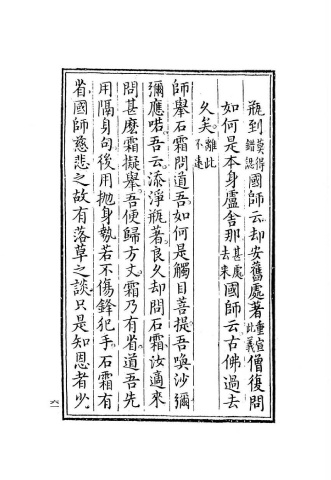 瓶到莫得錯認國師云却安舊處著重宣此義僧復問
如何是本身盧舍那甚處去來國師云古佛過去
久矣離此不遠
師舉石霜問道吾如何是觸目菩提吾喚沙彌
彌應喏吾云添淨瓶著良久却問石霜汝適來
問甚麽霜擬舉吾便歸方丈霜乃有省道吾先
用隔身句後用抛身勢若不傷鋒犯手石霜有
省國師慈悲之故有落草之談只是知恩者少
六一